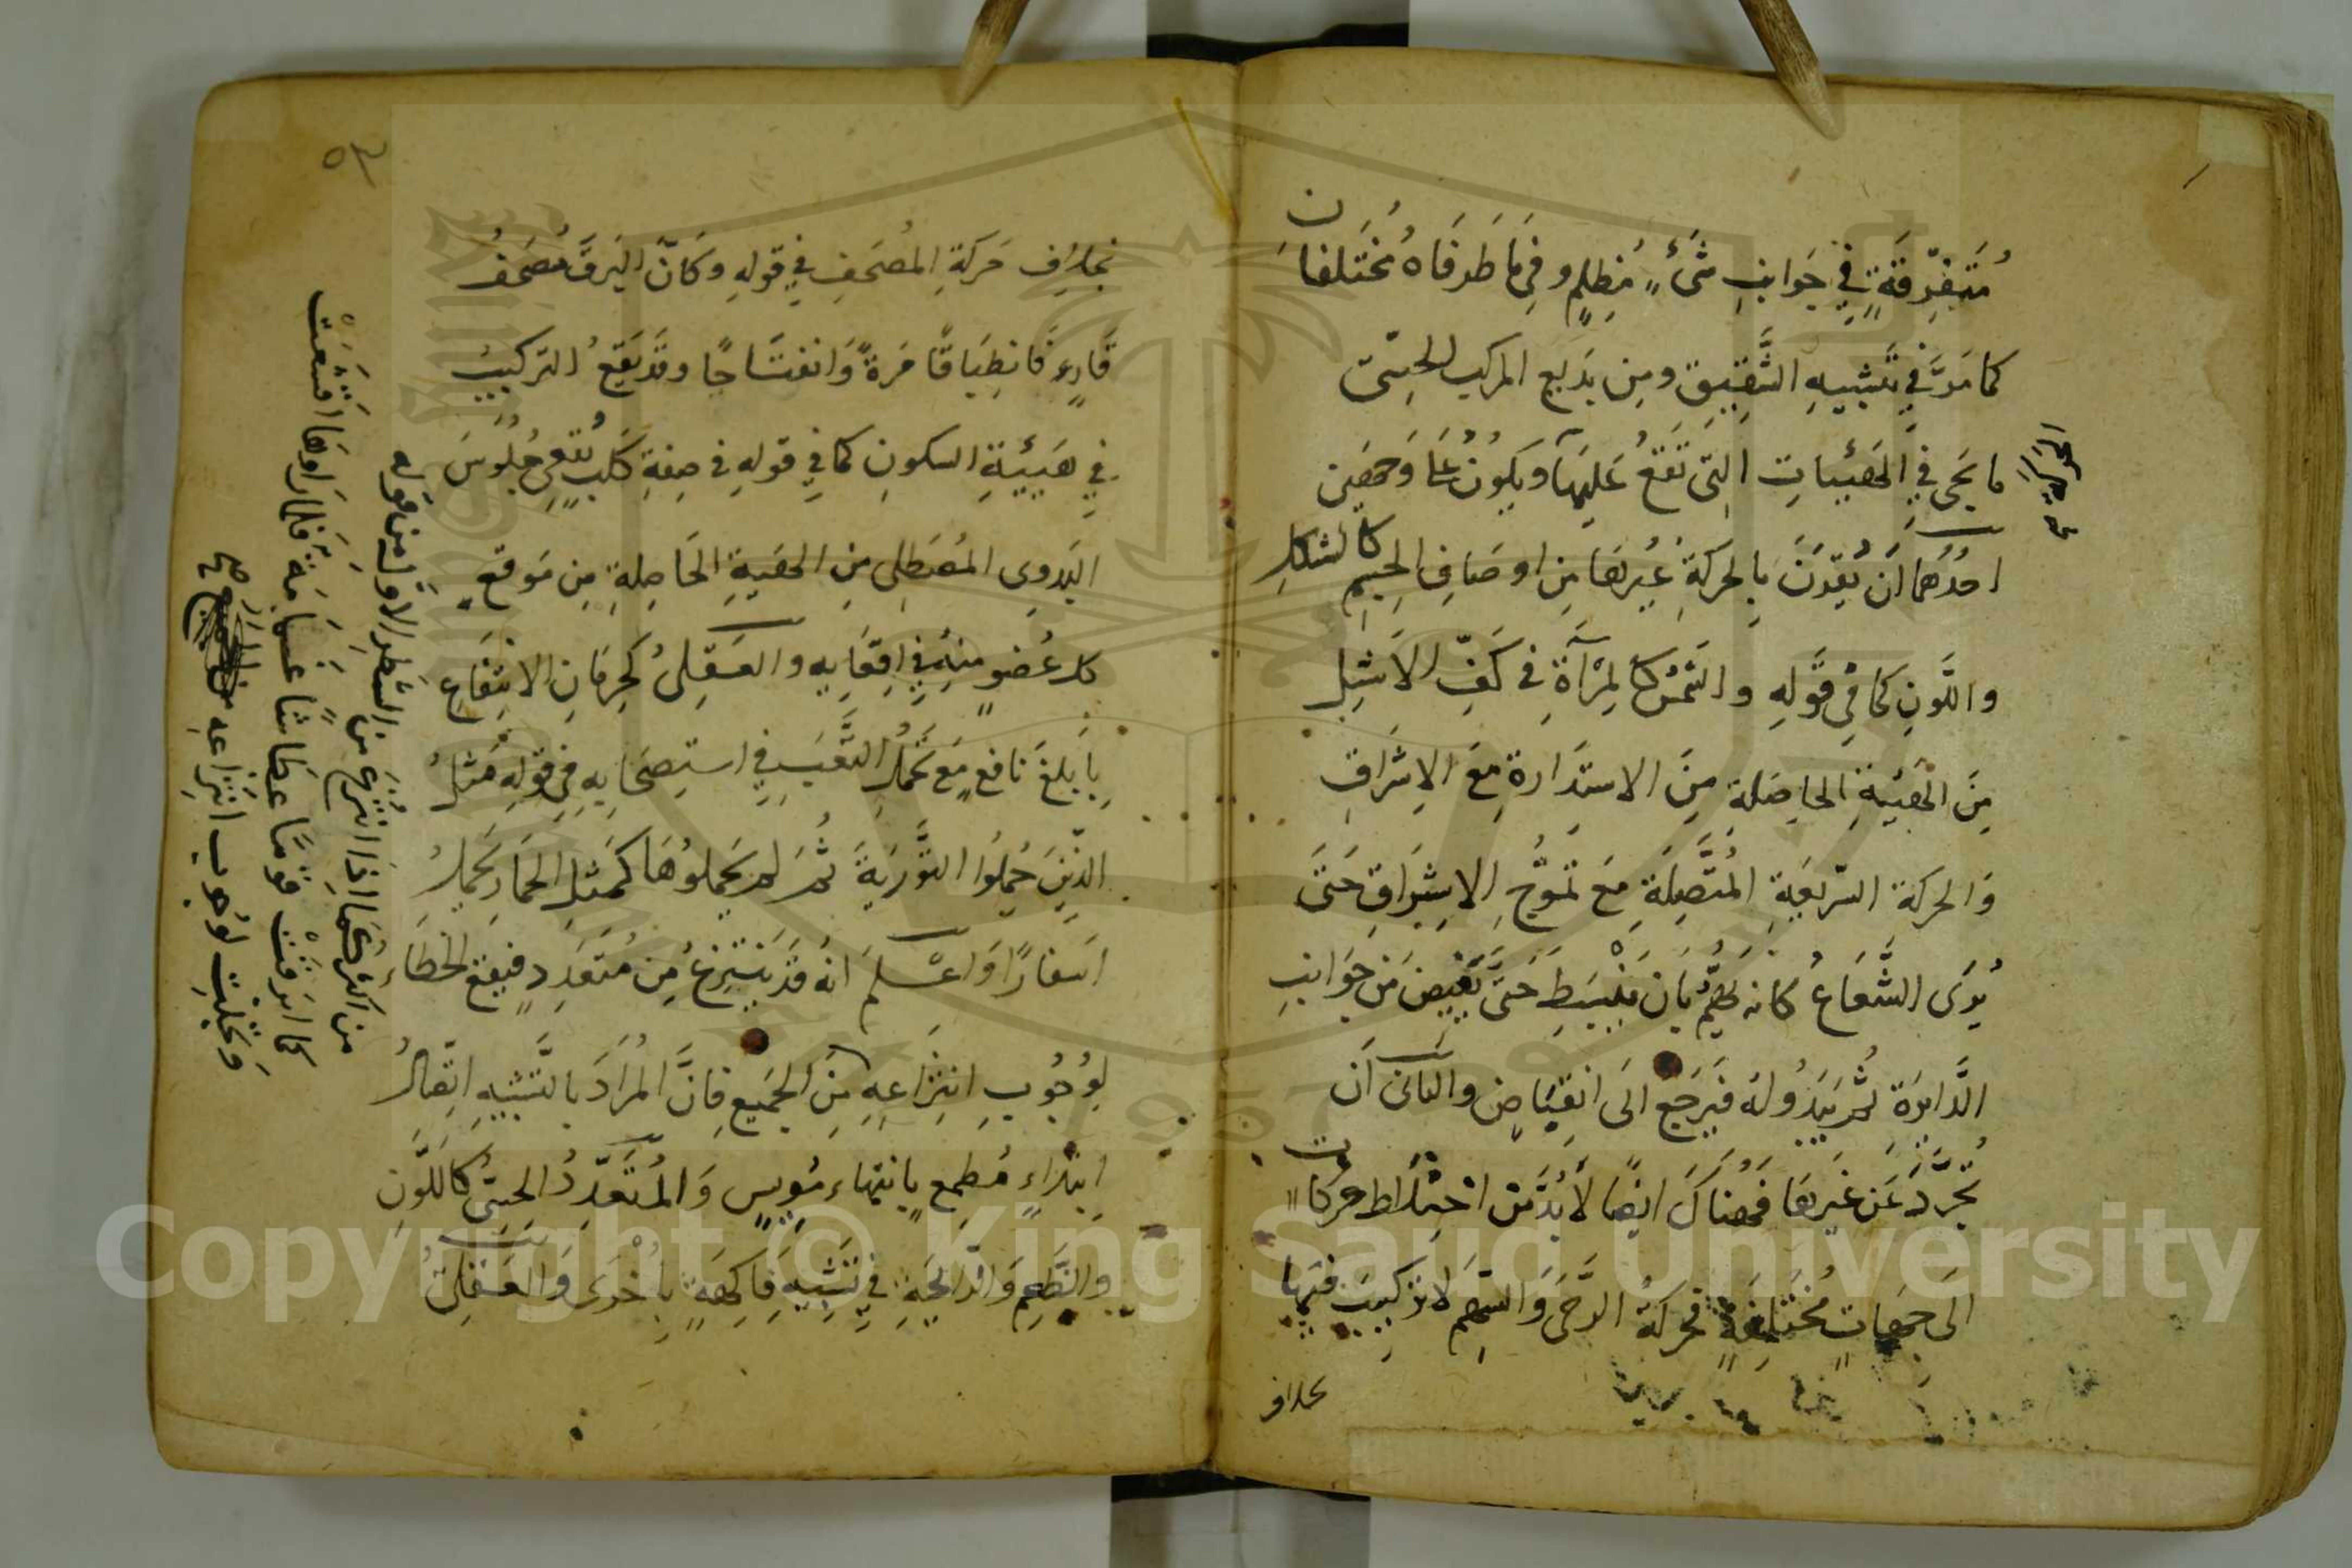 مُتَفَرِّقَةٍ فِي جَوَانِبِ شَيْءٍ مُظلِمٍ وَفِيمَا طَرَفَاهُ مُخْتَلِفَانِ
كما مَرَّ فِي تَشْبِيهِ الشَّقِيقِ ومِن بَدِيعِ المركب الحِسّى
ما يَجِئُ فِي الْهَيْئَاتِ الَّتِي تَقَعُ عَلَيْهَا وَيَكُونُ عَلَى وَجْهَيْنِ
احَدُهُما أَنْ يُقْرَنَ بِالحركَةِ غَيْرُهَا مِن اوصَافِ الجِسْمِ كَالشكلِ
واللَّونِ كَمَا فِي قَوْلِهِ والشَّمْسُ كالْمِرْآةِ فِي كَفِّ الأَشَلِّ
مِنَ الْهَيْئَةِ الحاصِلَةِ مِنَ الاستِدَارَةِ مَعَ الإِشْرَاقِ
وَالحركة السَّرِيعَةِ المُتَّصِلَةِ مَعَ تَمَوُّجِ الإِشْرَاقِ حَتَّى
يُرَى الشُّعَاعُ كانه يَهُمُّ بِأَن يَنْبَسِطَ حَتَّى يَفِيضَ مِن جَوَانِبِ
الدَّائِرَةِ ثُمَّ يَبْدُو لَهُ فَيَرْجِعُ الَى انقِبَاضٍ والثانى أَنْ
تُجَرَّدَ عَنْ غَيْرِهَا فَهُنَاكَ ايضًا لَا بُدَّ مِنْ اخْتِلَاطِ حركات
الَى جِهَاتٍ مُخْتَلِفَةٍ فَحركَةُ الرَّحَى وَالسَّهْمِ لَا تركِيبَ فيها
بخلاف
٥٣
بخِلَافِ حَرَكَةِ المُصْحَفِ فِي قَولِهِ وكَأَنَّ البَرقَ مُصْحَفُ
قَارٍ فَانطِبَاقًا مَرَّةً وَانفِتَاحًا وقَدْ يَقَعُ التَركِيبُ
فِي هَيْئَةِ السكونِ كما فِي قَولِهِ فِي صِفَةِ كَلْبٍ يُقْعِي جُلُوسَ
البَدَوِي المُصْطَلِى مِنَ الهَيْئَةِ الحَاصِلَةِ مِن مَوقِعِ
كل عُضوٍ مِنهُ فِي اِقعَائِهِ والعَقلِىُّ كَحِرمَانِ الانتِفَاعِ
بِأَبلَغِ نافِعٍ مَعَ تَحَمُّلِ التَّعَبِ فِي استِصحَابِهِ فِي قَولِهِ مَثَلُ
الَّذِينَ حُمِّلُوا التَّوْرَيةَ ثُمَّ لم يَحْمِلُوهَا كَمَثَلِ الحِمَارِ يَحْمِلُ
اسفارًا وَاعْلَمْ انهُ قَدْ يُنْتَزَعُ مِن مُتَعَدِّدٍ فَيَقَعُ الخَطَاء
لِوُجُوبِ انتِزَاعِهِ مِنَ الجَمِيعِ فَاِنَّ المُرَادَ بالتَّشْبِيهِ اتِّصَالُ
ابتداءٍ مُطمِعٍ بِانتِهَاء مُويِسٍ وَالمُتَعَدِّدُ الحِسِّىُّ كَاللَّونِ
والطَّعمِ وَالرَّائِحَةِ فِي تَشْبِيهِ فَاكِهَةٍ بِأُخْرَى وَالعَقلِىُّ
من اكثر كما اذا انتُزِعَ من الشَّطرِ الاوَّلِ من قوله
كما ابرَقَتْ قَومًا عِطَاشًا غَمَامَةٌ فَلَمَّا رَاَوهَا اَقشَعَتْ
وَتَجَلَّتِ لوُجوبِ انتِزَاعِهِ
صح